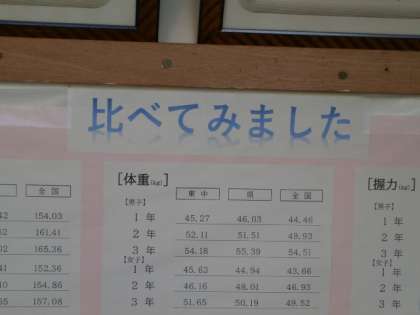 比べてみました
[体重(kg)]
東中 県 全国
[男子]
1 年 45.27 46.03 44.46
2 年 52.11 51.51 49.93
3 年 54.18 55.39 54.51
[女子]
1 年 45.63 44.94 43.66
2 年 46.16 48.01 46.93
3 年 51.65 50.19 49.52
全国
154.03
161.41
165.36
152.36
154.86
157.08
[握力(kg)]
[男子]
1
2
3
[女子]
1
2
3